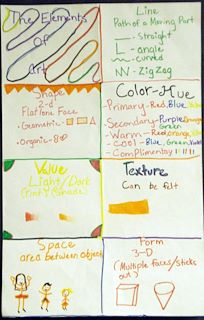 The Elements
Of
Art
Line
Path of a Moving Part
- straight
- angle
- curved
- ZigZag
Shape
2-d
Flat one Face
- Geometric-
- Organic-
Color-Hue
- Primary-Red,Blue,
- Secondary-Purple,Orange
Green
- Warm-Red,Orange,
- Cool-Blue,Green,Violet
- Complimentary
Value
Light/Dark
(Tint/Shade)
Texture
Can be felt
Space
area between objects
Form
3-D
(Multiple faces/sticks
out)